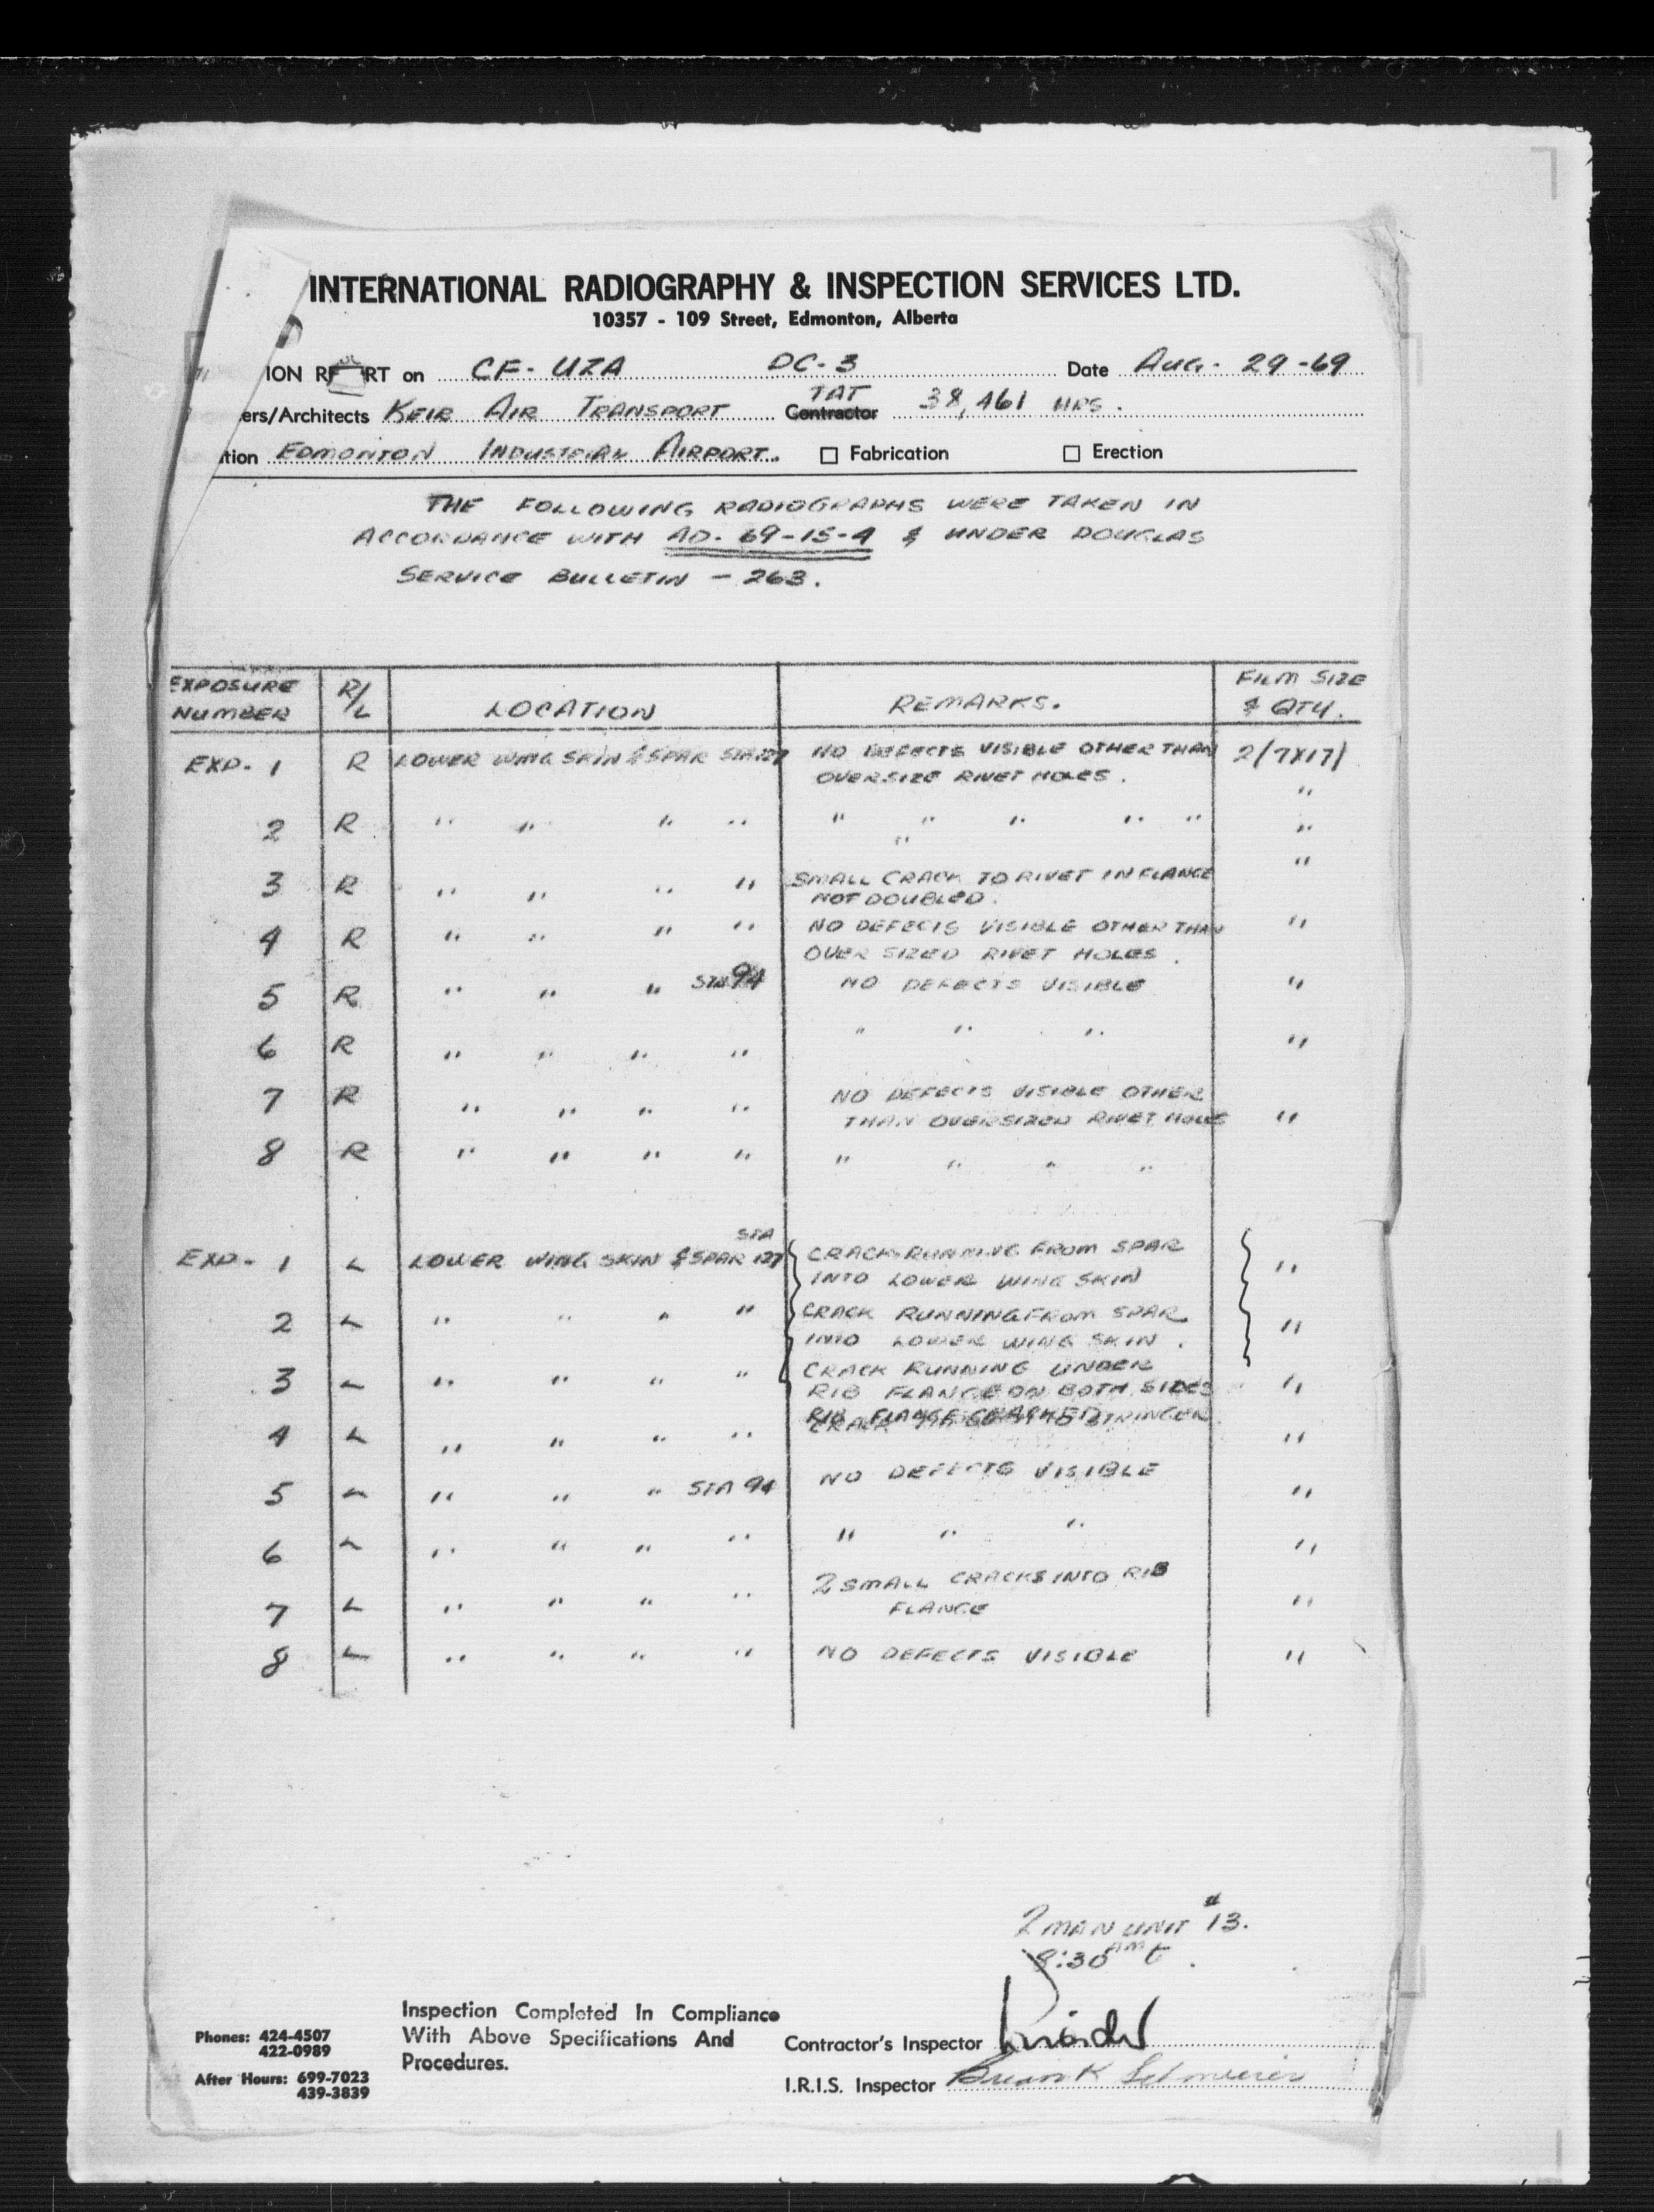 INTERNATIONAL RADIOGRAPHY & INSPECTION SERVICES LTD.
10357 - 109 Street, Edmonton, Alberta
ION REPORT on CF-UZA DC-3 Date AUG. 29-69
TAT
ers/Architects KEIR AIR TRANSPORT Contractor 38,461 HRS.
tion EDMONTON INDUSTRIAL AIRPORT. ☐ Fabrication ☐ Erection
THE FOLLOWING RADIOGRAPHS WERE TAKEN IN
ACCORDANCE WITH AD. 69-15-4 & UNDER DOUGLAS
SERVICE BULLETIN - 263.
EXPOSURE NUMBER R/L LOCATION REMARKS. FILM SIZE & QTY.
EXP-1 R LOWER WING SKIN & SPAR STA 127 NO DEFECTS VISIBLE OTHER THAN 2/7X17/
OVERSIZE RIVET HOLES. "
2 R " " " " " " " " " "
" 
3 R " " " " SMALL CRACK TO RIVET IN FLANGE "
NOT DOUBLED.
4 R " " " " NO DEFECTS VISIBLE OTHER THAN "
OVER SIZED RIVET HOLES.
5 R " " " STA 94 NO DEFECTS VISIBLE "
6 R " " " " " " " "
7 R " " " " NO DEFECTS VISIBLE OTHER
THAN OVERSIZED RIVET HOLES "
8 R " " " " " " " "
STA
EXP-1 L LOWER WING SKIN & SPAR 127 CRACK RUNNING FROM SPAR "
INTO LOWER WING SKIN
2 L " " " " CRACK RUNNING FROM SPAR "
INTO LOWER WING SKIN.
3 L " " " " CRACK RUNNING UNDER "
RIB FLANGE ON BOTH SIDES
RIB FLANGE CRACKED STRINGER
4 L " " " " "
5 L " " " STA 94 NO DEFECTS VISIBLE "
6 L " " " " " " " "
7 L " " " " 2 SMALL CRACKS INTO RIB "
FLANGE
8 L " " " " NO DEFECTS VISIBLE "
2 MAN UNIT #13.
8:30 AM
Inspection Completed In Compliance
With Above Specifications And
Procedures.
Phones: 424-4507
422-0989
After Hours: 699-7023
439-3839
Contractor's Inspector
I.R.I.S. Inspector